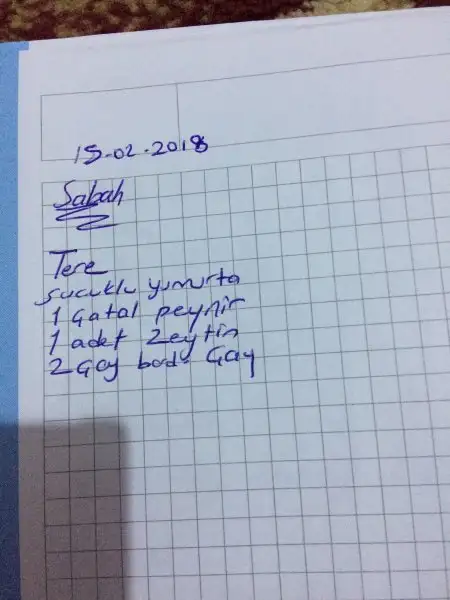 15.02.2018
Sabah
Tere
sucuklu yumurta
1 Çatal peynir
1 adet Zeytin
2 Çay bard. Çay